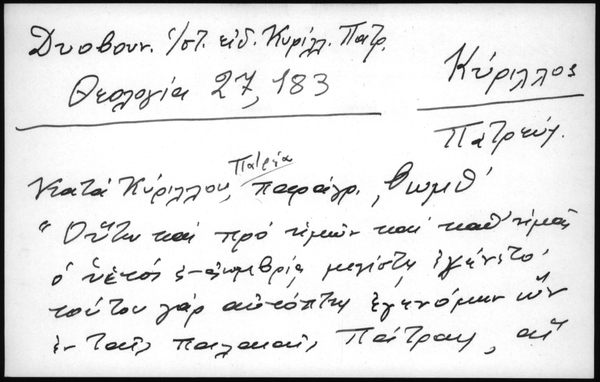 Δυοβουν. ἱ/στ. εἰδ. Κυρίλλ. Πατρ.
Θεολογία 27, 183
Κύριλλος
Πατρεύς.
Πατρέα
Κατὰ Κύριλλου, παράγρ. ͵αωμθʹ
" Οὕτω καὶ πρὸ ἡμῶν καὶ καθ' ἡμᾶς
ὁ ὑετὸς ἐπομβρία μεγίστη ἐγένετο·
τούτου γὰρ αὐτόπτης ἐγενόμην ὢν
ἐν ταῖς παλαιαῖς Πάτραις, αἳ